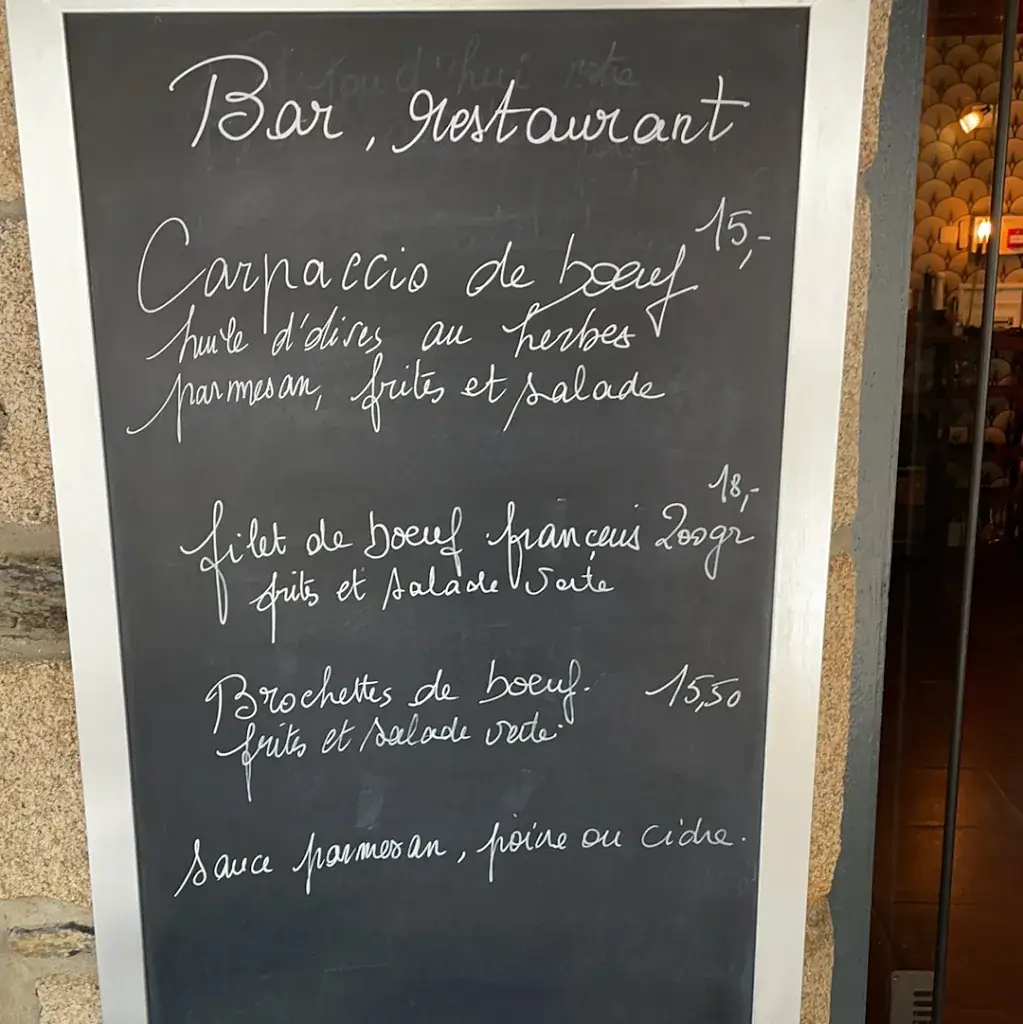 Bar, restaurant
Carpaccio de boeuf 15,-
huile d'olives au herbes
parmesan, frites et salade
18,-
filet de boeuf français 200gr
frites et salade verte
Brochettes de boeuf. 15,50
frites et salade verte.
sauce parmesan, poivre ou cidre.